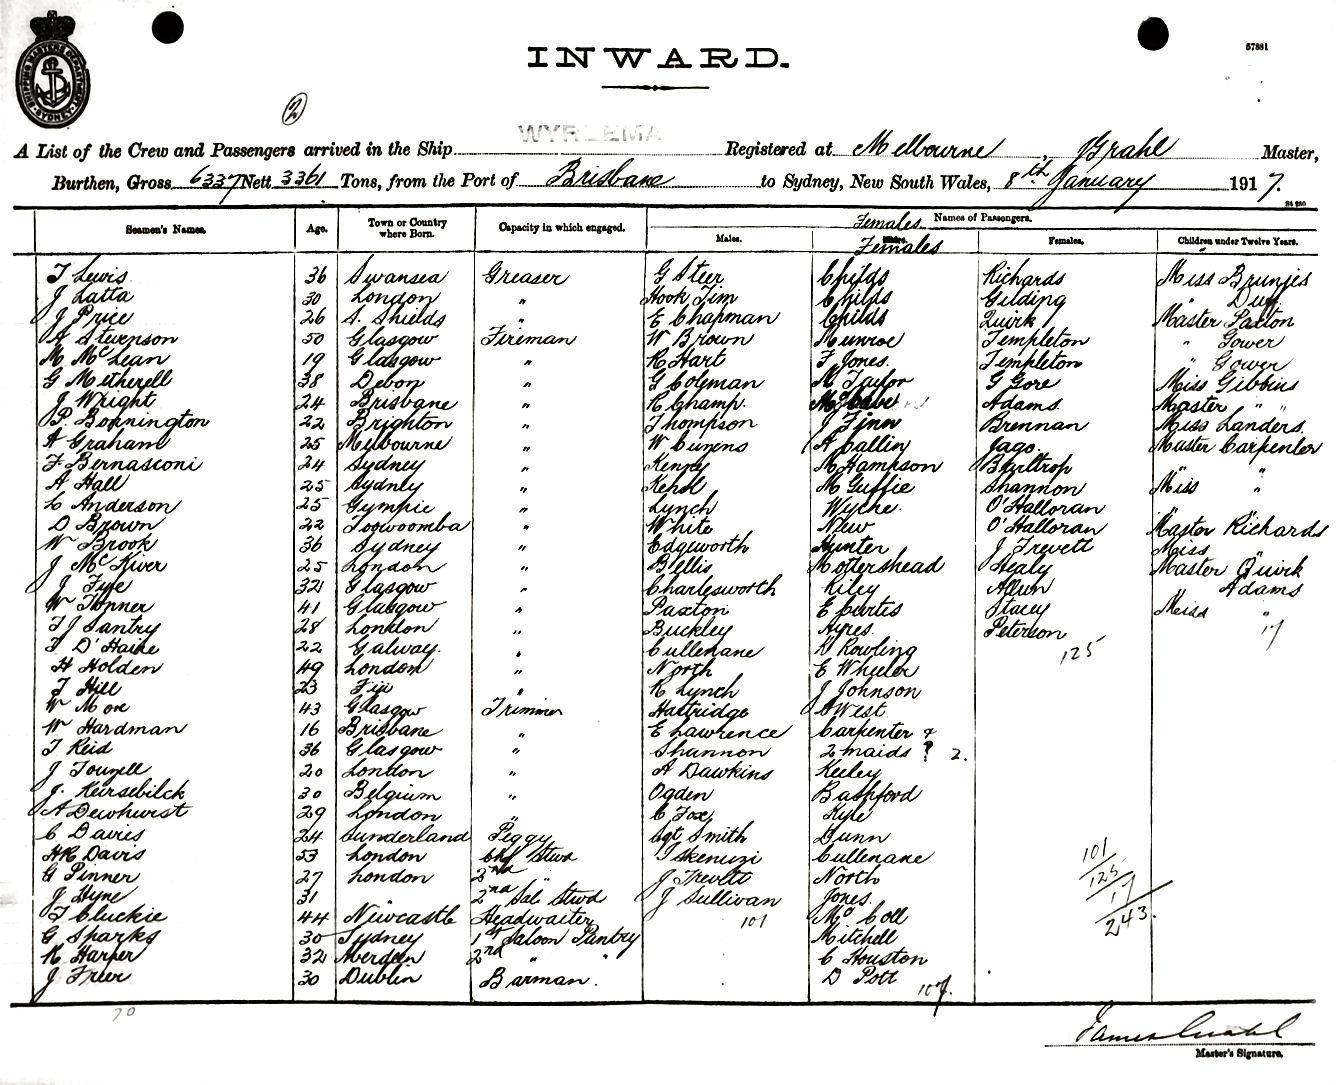 57881
INWARD.
SHIPPING MASTERS DEPARTMENT SYDNEY
2
WYREEMA
A List of the Crew and Passengers arrived in the Ship Registered at Melbourne Grahl Master,
Burthen, Gross 6337 Nett 3361 Tons, from the Port of Brisbane to Sydney, New South Wales, 8th January 1917.
Females Names of Passengers.
Seamen's Names. Age. Town or Country where Born. Capacity in which engaged. Males. Females Females. Children under Twelve Years.
T Lewis 36 Swansea Greaser G Steer Childs Richards Miss Brunjes
J Latta 30 London " Hook Jim Childs Gilding "
J Price 26 S. Shields " E Chapman Childs Quirk Master Paxton
Stevenson 50 Glasgow Fireman W Brown Munroe Templeton " Gower
M McLean 19 Glasgow " R Hart F Jones Templeton " Gower
G Metherell 38 Devon " G Coleman M Taylor G Gore Miss Gibbins
J Wright 24 Brisbane " R Champ. Adams Master " "
P. Bonnington 22 Brighton " Thompson J Finn Brennan Miss Landers.
A Graham 25 Melbourne " W Curens A Callin Jago. Master Carpenter
F Bernasconi 24 Sydney " Kenny M Hampson Barltrop " "
A Hall 25 Sydney " McGuffie Shannon Miss "
L Anderson 25 Gympie " Lynch Wyche O'Halloran " "
D Brown 22 Toowoomba " White New O'Halloran Master Richards
W Brook 36 Sydney " Edgeworth Hunter J Trevett Miss "
J McKiver 25 London " Bellis Mottershead Healy Master Quirk
J Fyfe 32 Glasgow " Charlesworth Riley Allen Adams
W Tonner 41 Glasgow " Paxton E Curtis Stacey Miss "
T J Santry 28 London " Buckley Ayres Peterson 17
T D'Haine 22 Galway. " Cullenane Rowling 125
H Holden 49 London " North E Wheeler
T Hill 23 Fiji " R Lynch J Johnson
W More 43 Glasgow Trimmer Hattridge West
W Hardman 16 Brisbane " E Lawrence Carpenter &
T Reid 36 Glasgow " Shannon 2 maids ? 2.
J Touzell 20 London " A Dawkins Keeley
J. Keirsebilck 30 Belgium " Ogden Bashford
A Dewhurst 29 London " C Fox Kyle
C Davies 24 Sunderland Peggy Sgt Smith Dunn
H R Davis 53 London Chf Stwd Cullenane 101
G Pinner 27 London 2nd " J Trevett North 125
J Hyne 31 2nd Sal. Stwd J Sullivan Jones. 17
T Cluckie 44 Newcastle Headwaiter 101 McColl 243.
G Sparks 30 Sydney 1st Saloon Pantry Mitchell
R Harper 32 Aberdeen 2nd " " C Houston
J Freer 30 Dublin Barman. D Pott
107.
70
James Grahl
Master's Signature.